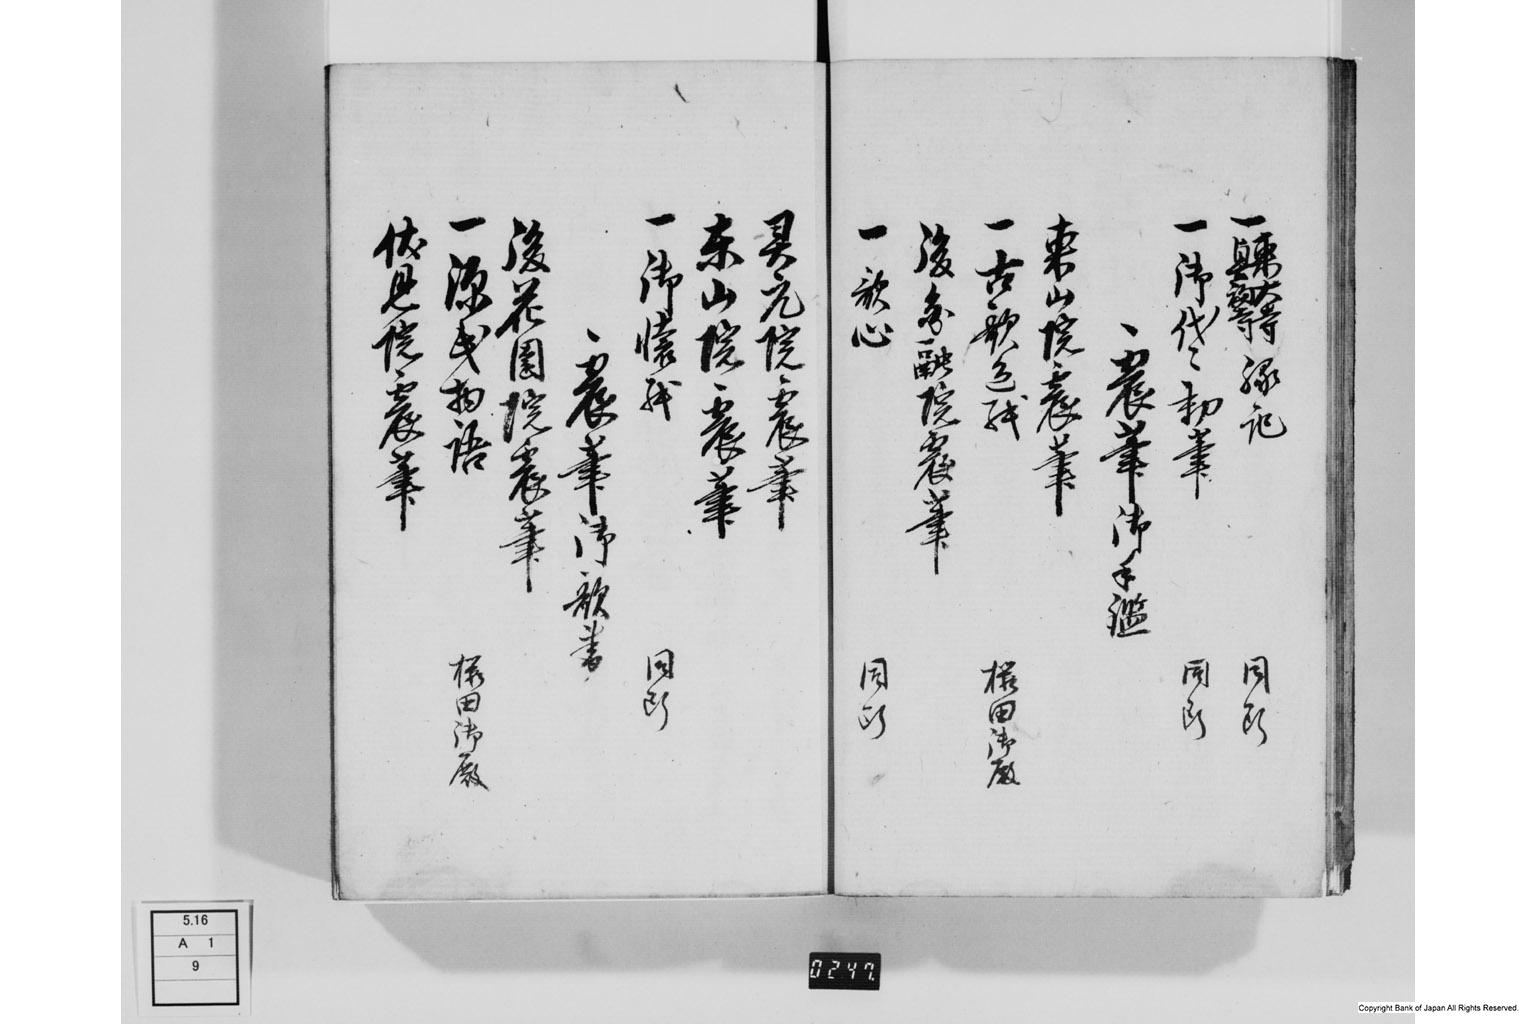 一東大寺
興福寺縁記 同所
一御代々勅筆 同所
宸筆御手鑑
東山院宸筆
一古歌色紙 桜田御殿
後圓融院宸筆
一歌心 同所
具元院宸筆
東山院宸筆
一御懐紙 同所
宸筆御歌書
後花園院宸筆
一源氏物語 桜田御殿
伏見院宸筆
5.16
A 1
9
0247
Copyright Bank of Japan All Rights Reserved.